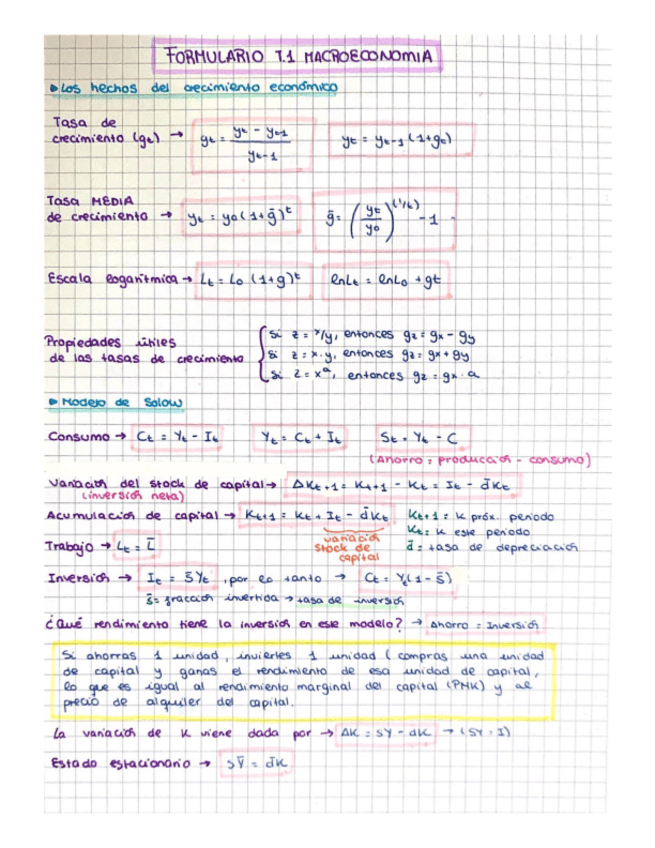 FORMULARIO T.1 MACROECONOMIA
▸ Los hechos del crecimiento económico
Tasa de
crecimiento (gt) → gt = (yt - yt-1) / yt-1    yt = yt-1 (1+gt)
Tasa MEDIA
de crecimiento → yt = y0 (1+ḡ)^t    ḡ = (yt / y0)^(1/t) - 1
Escala logarítmica → Lt = L0 (1+g)^t    lnLt = lnL0 + gt
Propiedades útiles
de las tasas de crecimiento
si z = x/y, entonces gz = gx - gy
si z = x·y, entonces gz = gx + gy
si z = x^a, entonces gz = gx · a
▸ Modelo de Solow
Consumo → Ct = Yt - It    Yt = Ct + It    St = Yt - C
(Ahorro = producción - consumo)
Variación del stock de capital → ΔKt+1 = Kt+1 - Kt = It - d̄Kt
(inversión neta)
Acumulación de capital → Kt+1 = Kt + It - d̄Kt    Kt+1 = K próx. periodo
variación stock de capital    Kt = K este periodo
Trabajo → Lt = L̄    d̄ = tasa de depreciación
Inversión → It = s̄Yt , por lo tanto → Ct = Yt(1 - s̄)
s̄ = fracción invertida → tasa de inversión
¿Qué rendimiento tiene la inversión en este modelo? → Ahorro = Inversión
Si ahorras 1 unidad, inviertes 1 unidad (compras una unidad
de capital y ganas el rendimiento de esa unidad de capital,
lo que es igual al rendimiento marginal del capital (PMK) y al
precio de alquiler del capital.
La variación de K viene dada por → ΔK = sY - dK → (sY = I)
Estado estacionario → sȲ = d̄K